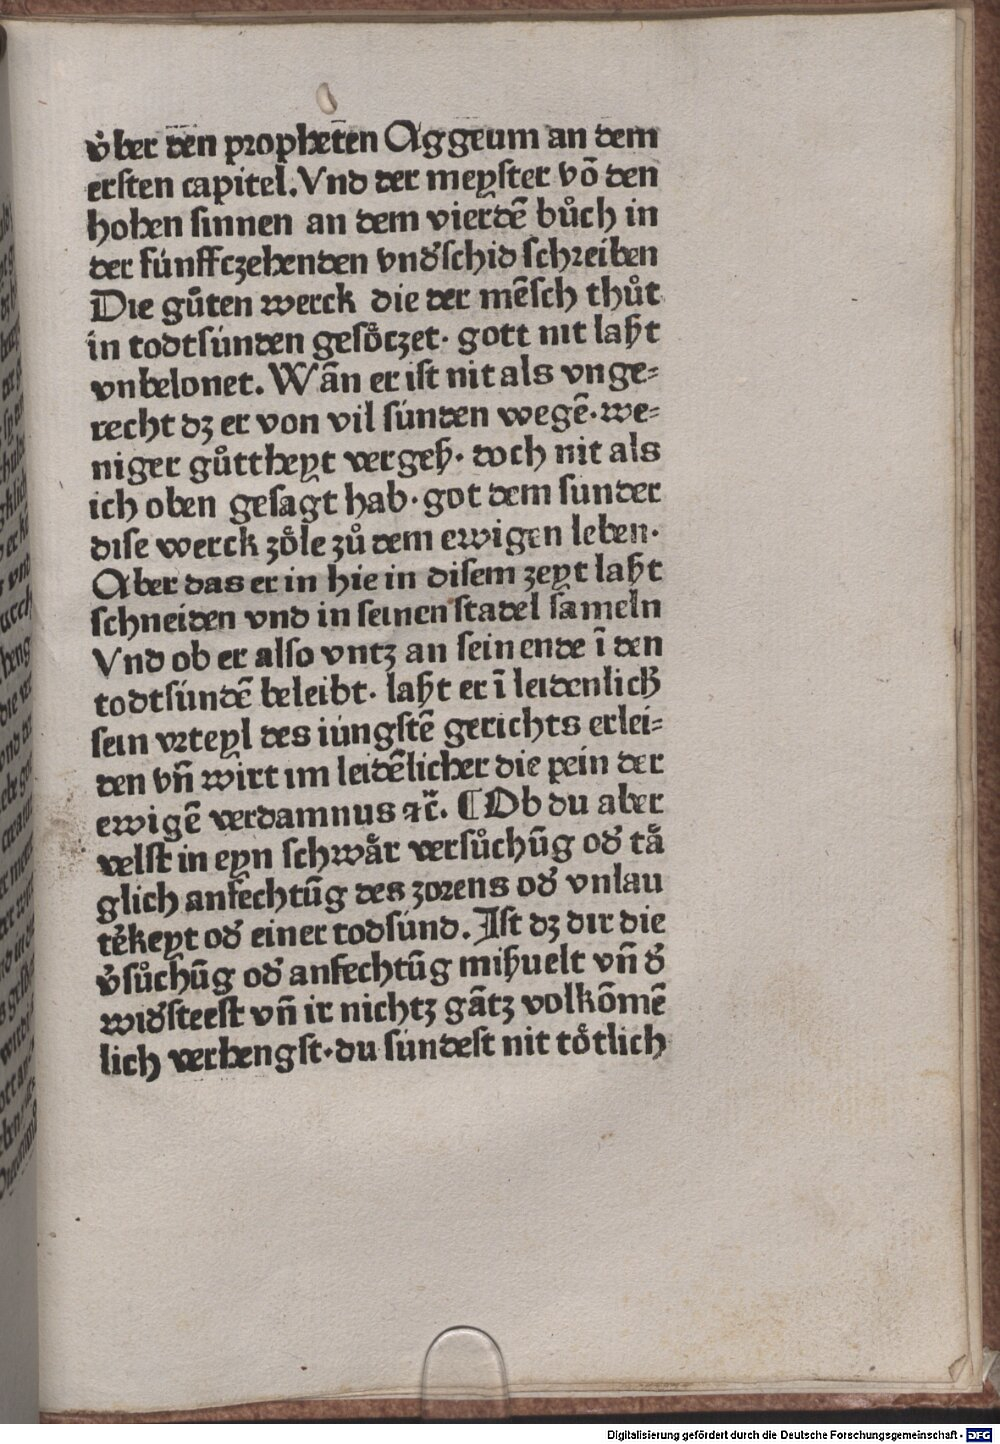 v̓ber den propheten Aggeum an dem
ersten capitel. Vnd der meyster võ den
hohen sinnen an dem vierdē bůch in
der fúnffczehenden vnd̓schid schreiben
Die gůten werck die der mēsch thůt
in todtsúnden gesöczet· gott nit laßt
vnbelonet. Wān er ist nit als vnge⸗
recht dz er von vil súnden wegē· we⸗
niger gůttheyt vergeß· doch nit als
ich oben gesagt hab· got dem sunder
dise werck zöle zů dem ewigen leben·
Aber das er in hie in disem zeyt laßt
schneiden vnd in seinen stadel sameln
Vnd ob er also vntz an sein ende ī den
todtsúndē beleibt· laßt er ī leidenlich
sein vrteyl des iúngstē gerichts erlei⸗
den vn̄ wirt im leidēlicher die pein der
ewigē verdamnus ⁊c̈. ¶ Ob du aber
velst in eyn schwår versůchūg od̓ tå
glich anfechtūg des zorens od̓ vnlau
tẻkeyt od̓ einer todsúnd. Ist dz dir die
v̓sůchūg od̓ anfechtūg mißuelt vn̄ d̓
wid̓steest vn̄ ir nichtz gātz volkōmē
lich verhengst· du súndest nit tötlich
Digitalisierung gefördert durch die Deutsche Forschungsgemeinschaft - DFG